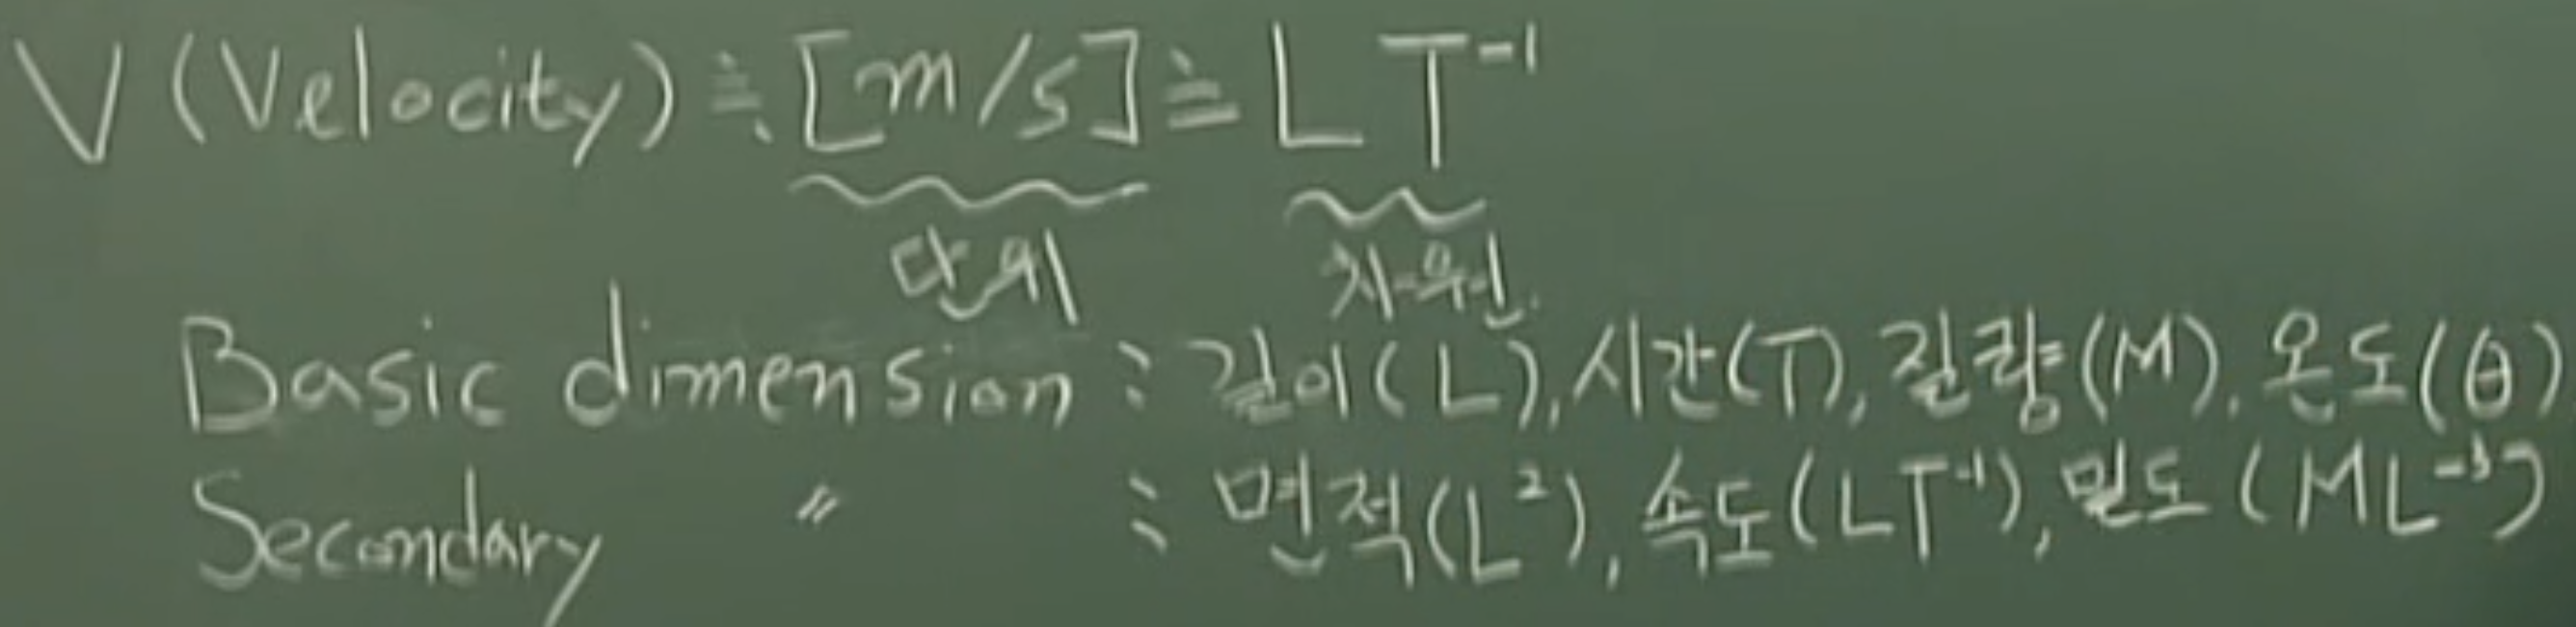 V (Velocity) ≐ [m/s] ≐ LT⁻¹
단위 차원
Basic dimension : 길이(L), 시간(T), 질량(M), 온도(θ)
Secondary 〃 : 면적(L²), 속도(LT⁻¹), 밀도(ML⁻³)